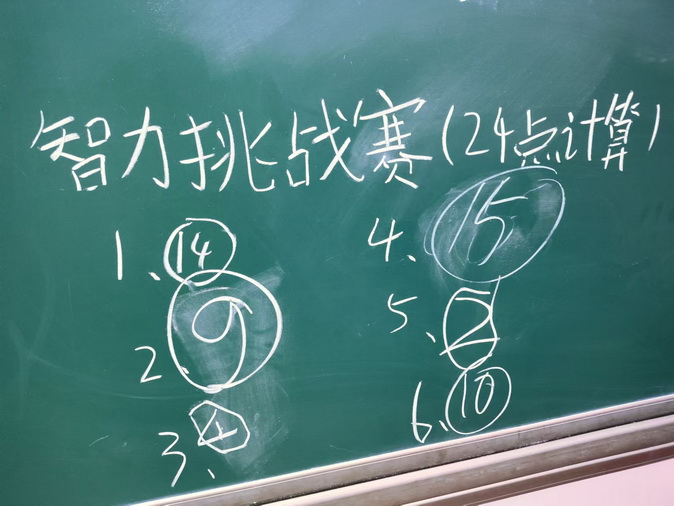 智力挑战赛(24点计算)
1、14
2、9
3、4
4、15
5、2
6、10